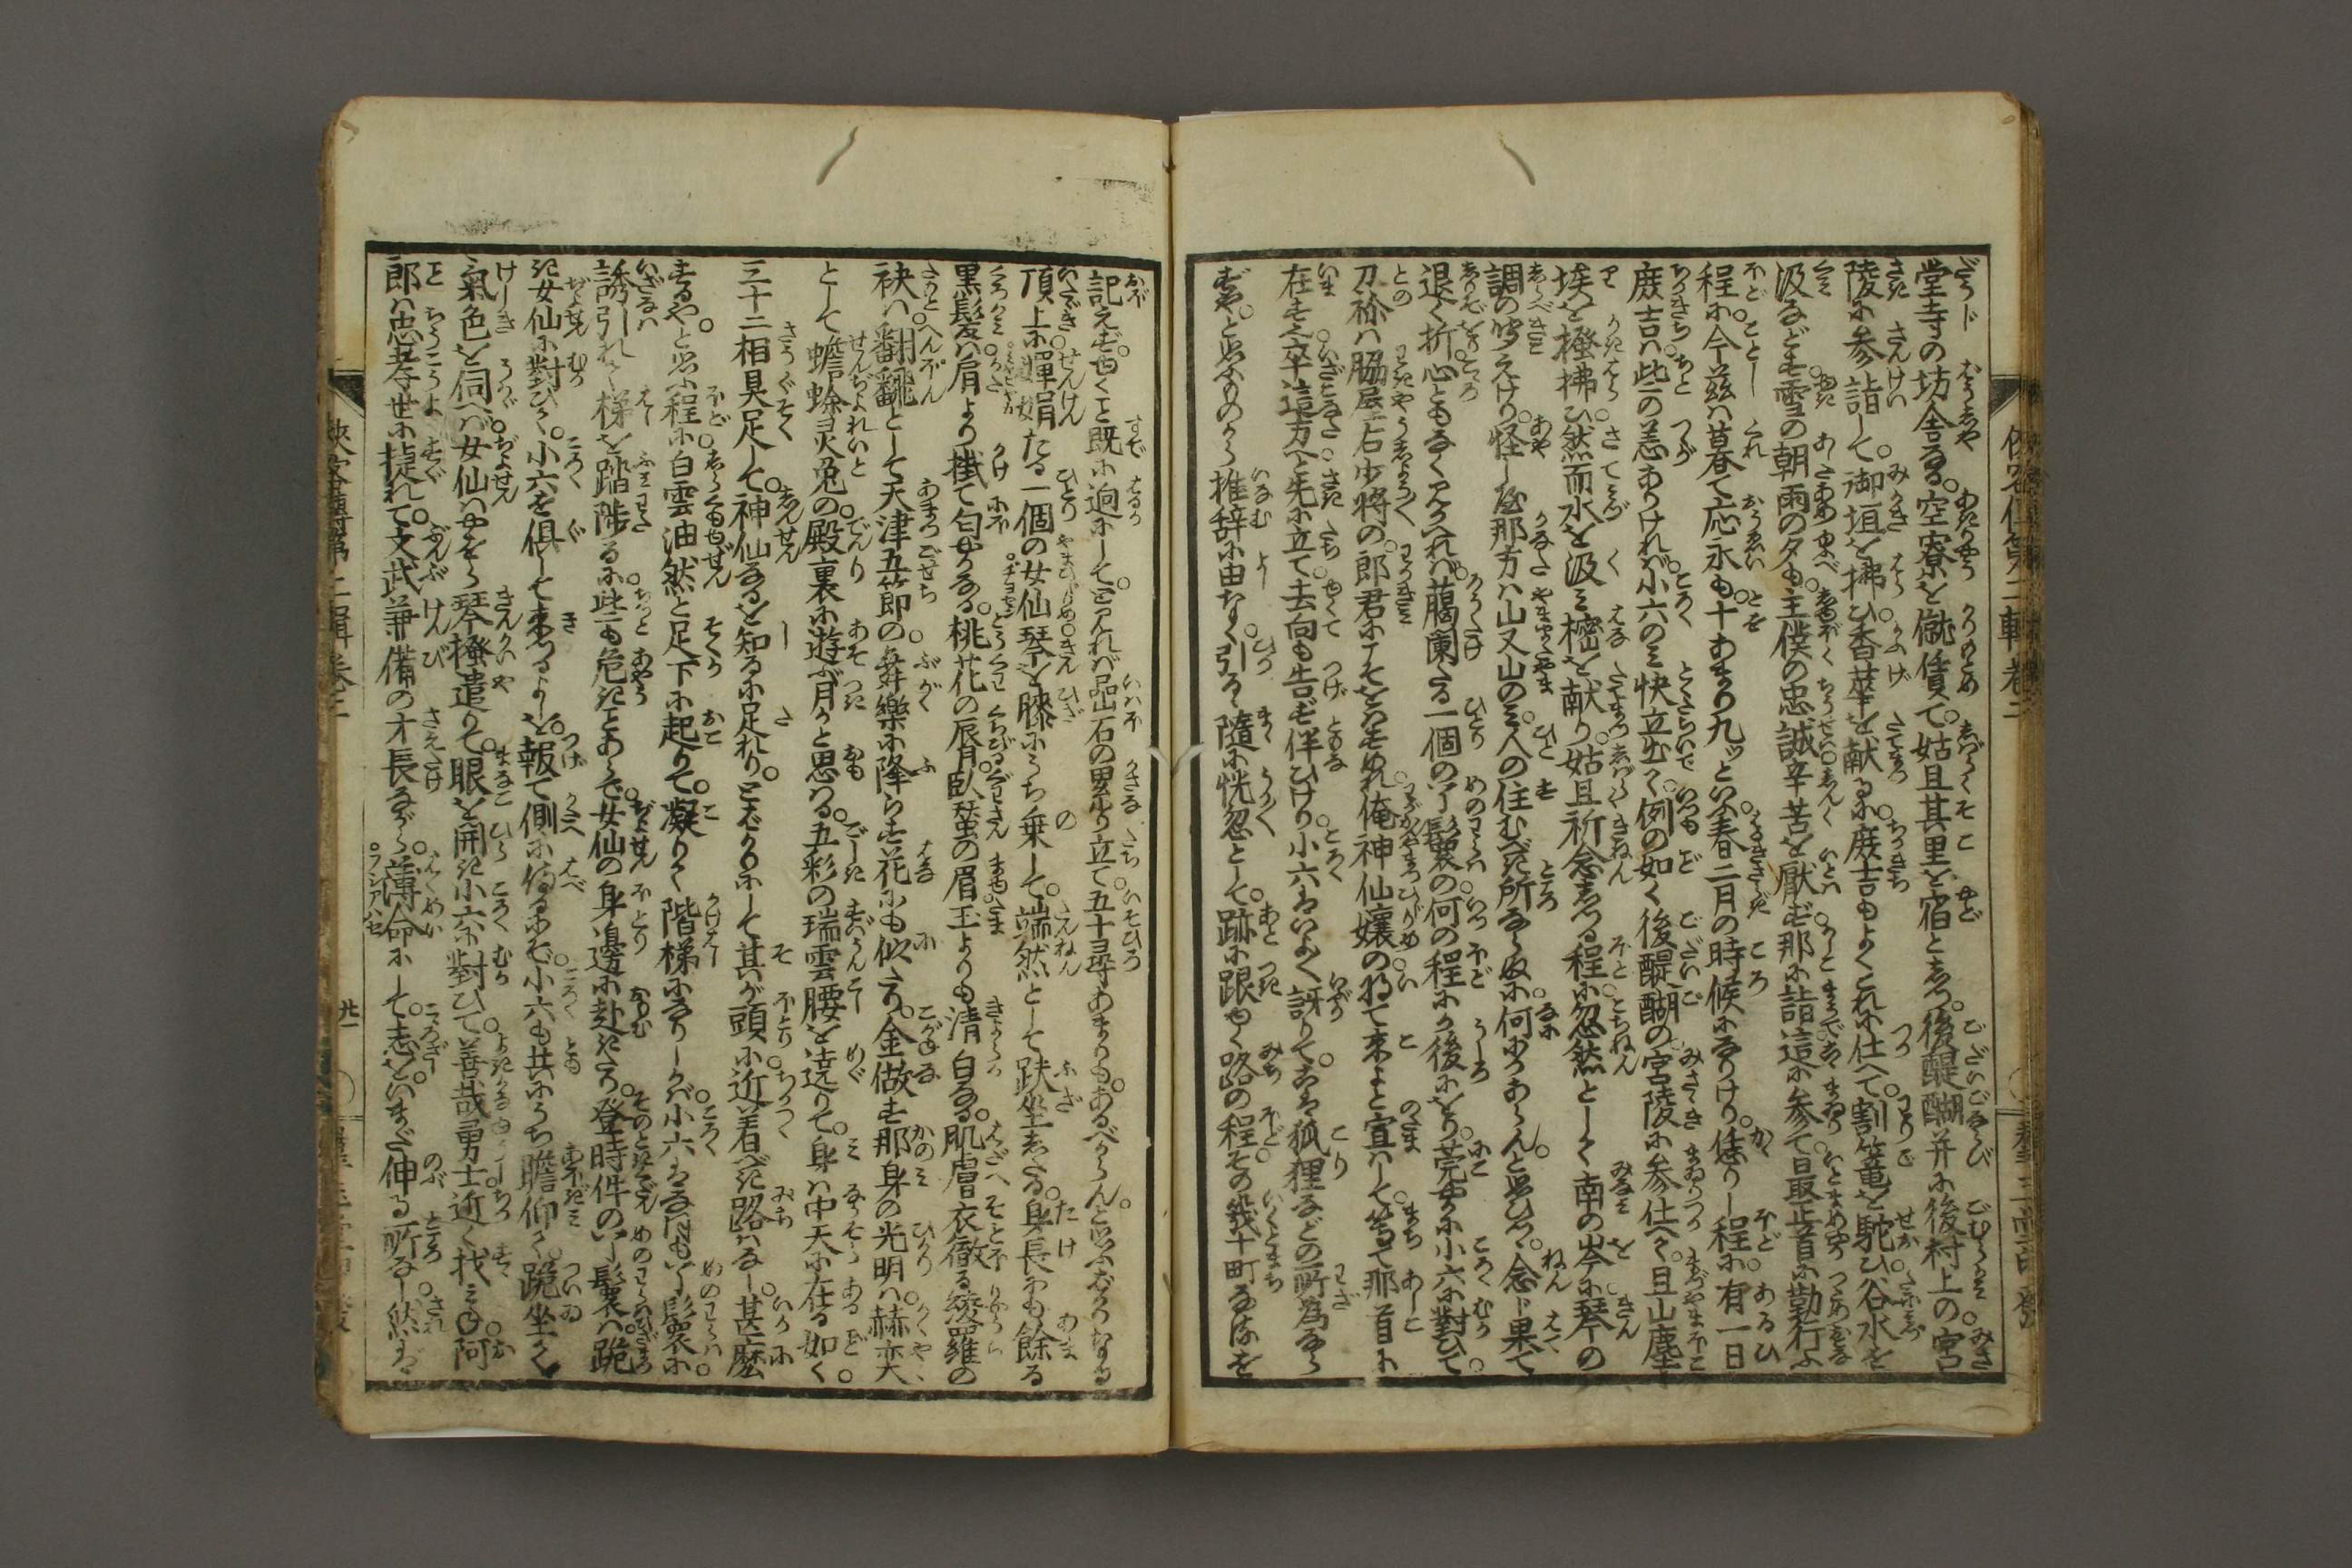 堂寺の坊舎なる。空寮を僦賃て。姑且其里を宿とし。後醍醐并に後村上の宮
陵に参詣して。御垣を掃ひ香華を献るに庭吉もよくこれに仕へて。割篭を駝ひ谷水を
汲など。雪の朝雨の夕も。主僕の忠誠辛苦を厭ず那に詣這に参て。最正首に勤行ふ
程に。今茲は暮て応永も。十あまり九ッといふ。春二月の時候になりけり。恁りし程に。有一日
庭吉は些の恙ありければ。小六のみ快立出て。例の如く後醍醐の宮陵に参仕へ。且山塵
埃を掻掃ひ。然而水を汲み樒を献り。姑且祈念する程に。忽然として南の岑に。琴の
調の聞えけり。怪し那方は山又山のみ。人の住むべき所ならぬに。何かあらんと思ひつゝ。念じ果て
退く折。心ともなく見かへれば。﨟闌たる一個の丫鬟の。何の程にか後にをり。莞やかに小六に對ひて
刀祢は脇屋右少将の。郎君にてをはさずや。俺神仙孃の。将て来よと宣はして。等て那首に
在せり。卒這方へと先に立て。去向も告ず伴ひけり。小六はいよゝ訝りて。こは狐狸などの所為なら
ずや。と思ふものから推辞に由なく。引るゝ隨に恍忽として。跡に跟ゆく路の程。その幾十町なるを
記えず。ゆくと既に迥にして。と見れば嵒石の畳り立て。五十尋あまりも。あるべからん。と思ふばかりなる
頂上に。嬋娟たる一個の女仙。琴を膝にうち乗して。端然として趺坐したる。身長にも餘る
黒髪は。肩より掛て匂やかなる。桃花の唇。臥蚕の眉。玉よりも清白なる。肌膚衣徹る綾羅の
袂は。翻翻として天津五節の。舞樂に降らす花にも似たり。金做す那身の光明は。赫奕
として蟾蜍灵兔の。殿裏に遊ぶ月かと思はる。五彩の瑞雲腰を遶りて。身は中天に在る如く。
三十二相具足して。神仙なるを知るに足れり。とばかりにして其が頭に。近着べき路はなし。甚麼
するや。と思ふ程に。白雲油然と足下に起りて。凝りて階梯になりしかば。小六は尚も丫鬟に。
誘引れて梯を。踏陟るに些も危きことあらで。女仙の身邊に赴きたり。登時件の丫鬟は跪
き。女仙に對ひて。小六を倶して来つるよしを。報て側に侍るにぞ。小六も共にうち瞻仰て。跪坐て
氣色を伺へば。女仙はやをら琴掻遣りて。眼を開き小六に對ひて。善哉勇士。近く找みね。阿
郎は忠孝世に捷れて。文武兼備の才長ながら。薄命にして。志を。いまだ伸る所なし。然れば